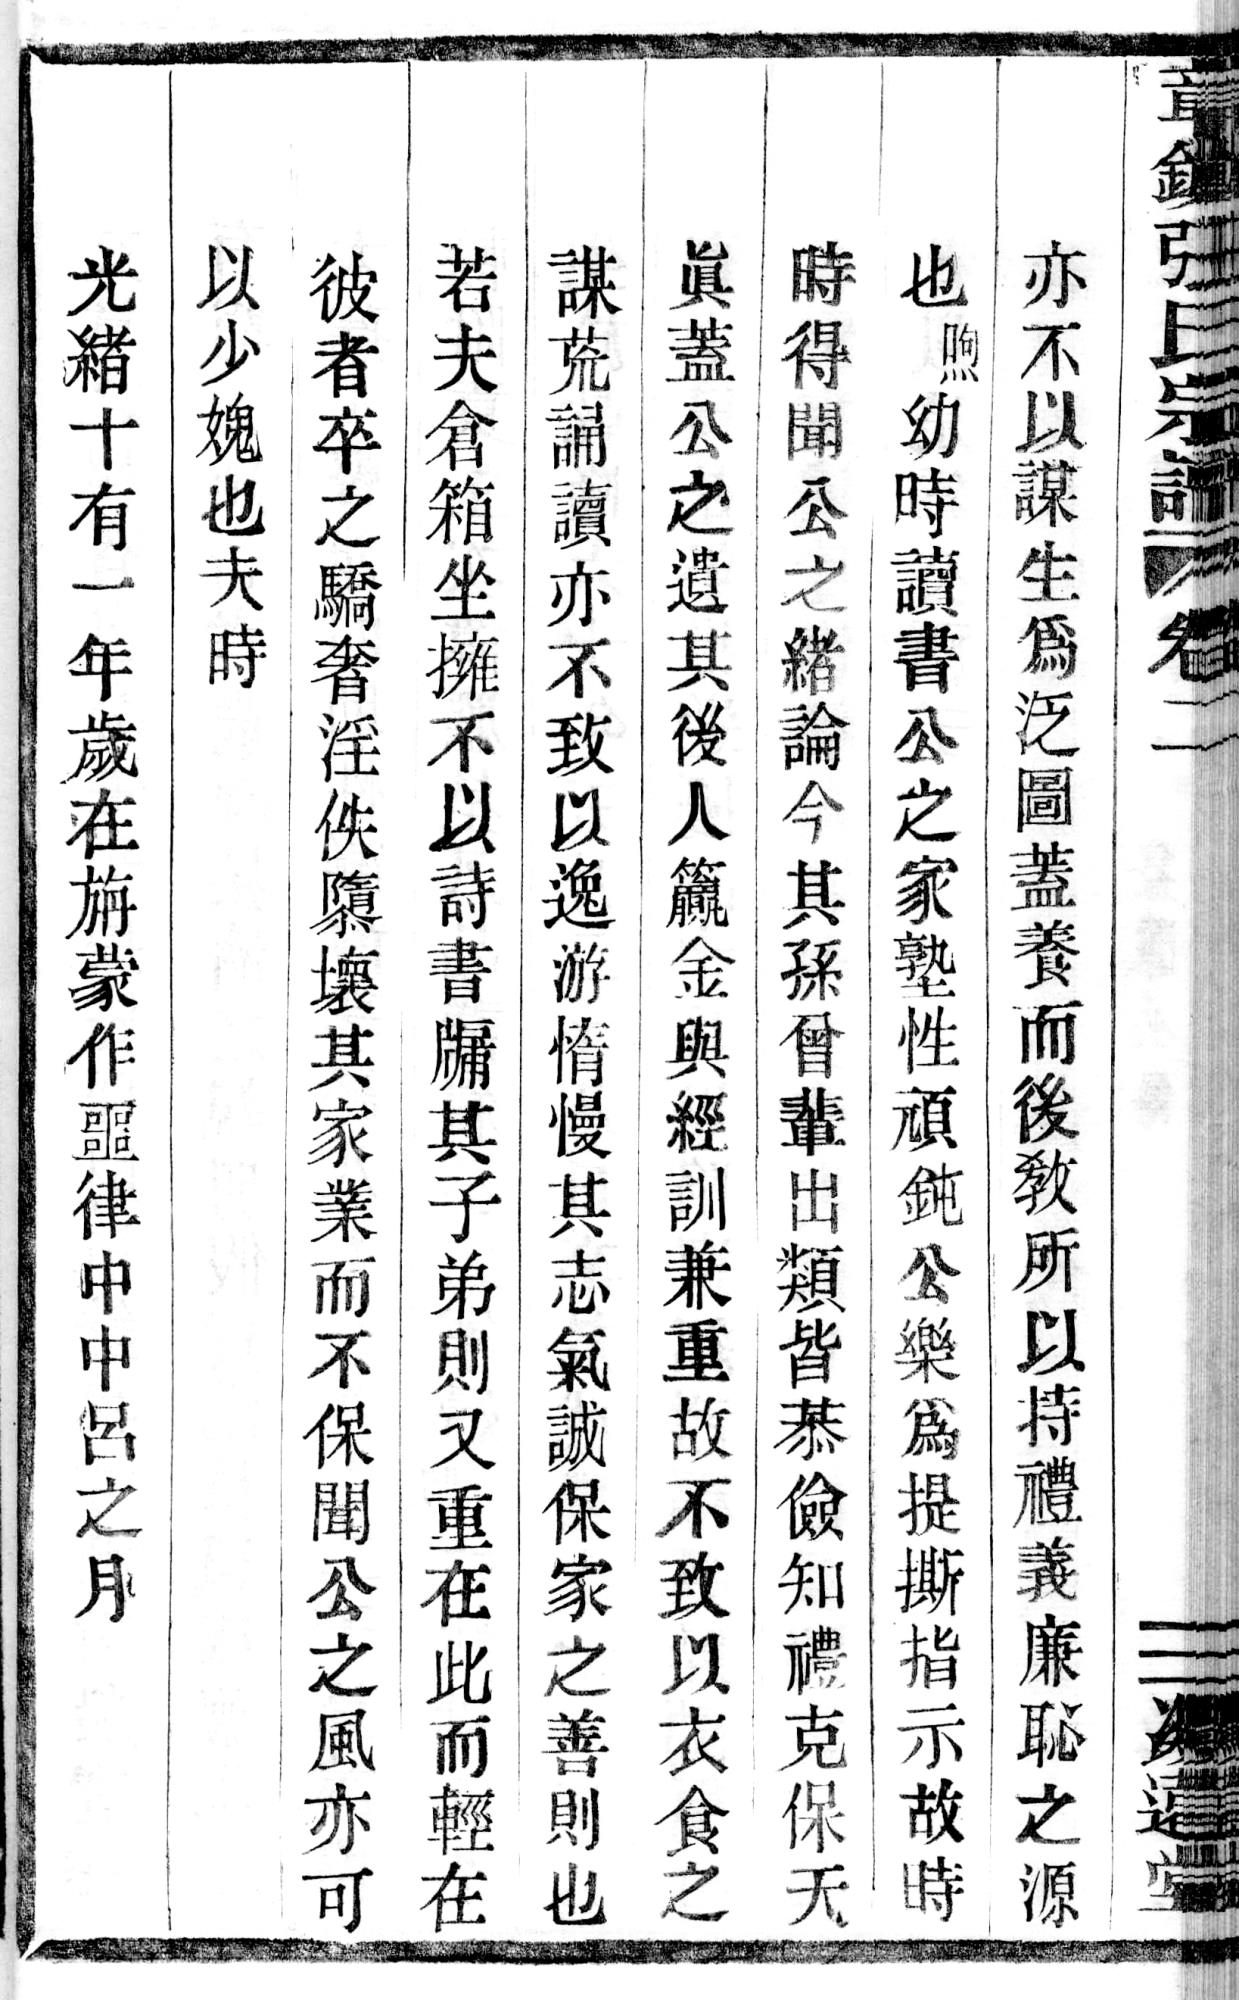 章鎮張氏宗譜 卷二
亦不以謀生爲泛圖蓋養而後敎所以持禮義廉恥之源
也煦幼時讀書公之家塾性頑鈍公樂爲提撕指示故時
時得聞公之緒論今其孫曾輩出類皆恭儉知禮克保天
眞蓋公之遺其後人籯金與經訓兼重故不致以衣食之
謀荒誦讀亦不致以逸游惰慢其志氣誠保家之善則也
若夫倉箱坐擁不以詩書牖其子弟則又重在此而輕在
彼者卒之驕奢淫佚隳壞其家業而不保聞公之風亦可
以少媿也夫時
光緖十有一年歲在旃蒙作噩律中中呂之月